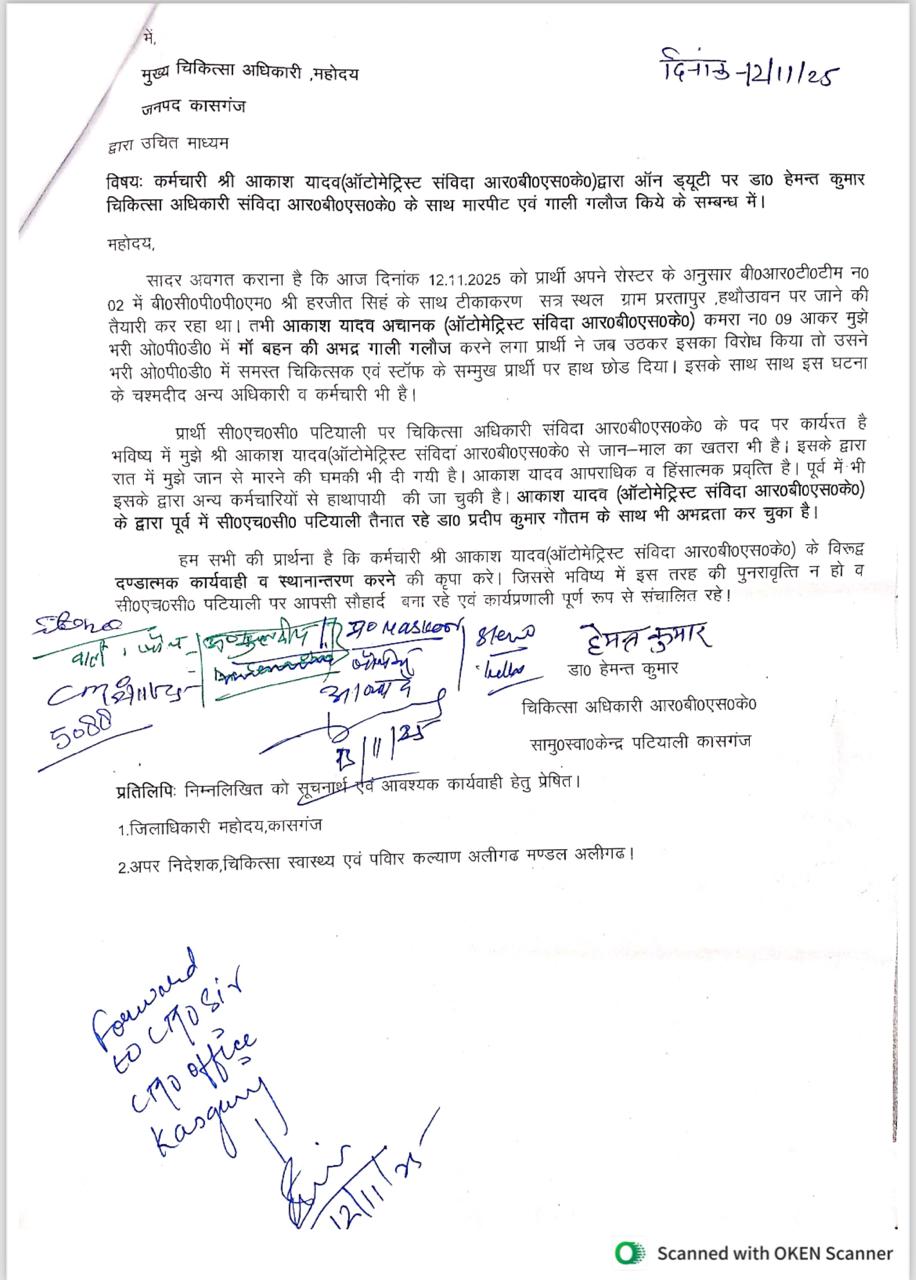 में,
मुख्य चिकित्सा अधिकारी ,महोदय
दिनांक -12/11/25
जनपद कासगंज
द्वारा उचित माध्यम
विषयः कर्मचारी श्री आकाश यादव(ऑटोमेट्रिस्ट संविदा आर0बी0एस0के0)द्वारा ऑन ड्यूटी पर डा0 हेमन्त कुमार
चिकित्सा अधिकारी संविदा आर0बी0एस0के0 के साथ मारपीट एवं गाली गलौज किये के सम्बन्ध में।
महोदय,
सादर अवगत कराना है कि आज दिनांक 12.11.2025 को प्रार्थी अपने रोस्टर के अनुसार बी0आर0टी0टीम न0
02 में बी0सी0पी0पी0एम0 श्री हरजीत सिहं के साथ टीकाकरण सत्र स्थल ग्राम प्ररतापुर ,हथौउावन पर जाने की
तैयारी कर रहा था। तभी आकाश यादव अचानक (ऑटोमेट्रिस्ट संविदा आर0बी0एस0के0) कमरा न0 09 आकर मुझे
भरी ओ0पी0डी0 में मॉ बहन की अभद्र गाली गलौज करने लगा प्रार्थी ने जब उठकर इसका विरोध किया तो उसने
भरी ओ0पी0डी0 में समस्त चिकित्सक एवं स्टॉफ के सम्मुख प्रार्थी पर हाथ छोड दिया। इसके साथ साथ इस घटना
के चश्मदीद अन्य अधिकारी व कर्मचारी भी है।
प्रार्थी सी0एच0सी0 पटियाली पर चिकित्सा अधिकारी संविदा आर0बी0एस0के0 के पद पर कार्यरत है
भविष्य में मुझे श्री आकाश यादव(ऑटोमेट्रिस्ट संविदां आर0बी0एस0के0 से जान-माल का खतरा भी है। इसके द्वारा
रात में मुझे जान से मारने की घमकी भी दी गयी है। आकाश यादव आपराधिक व हिंसात्मक प्रवृत्ति है। पूर्व में भी
इसके द्वारा अन्य कर्मचारियों से हाथापायी की जा चुकी है। आकाश यादव (ऑटोमेट्रिस्ट संविदा आर0बी0एस0के0)
के द्वारा पूर्व में सी0एच0सी0 पटियाली तैनात रहे डा0 प्रदीप कुमार गौतम के साथ भी अभद्रता कर चुका है।
हम सभी की प्रार्थना है कि कर्मचारी श्री आकाश यादव(ऑटोमेट्रिस्ट संविदा आर0बी0एस0के0) के विरूद्व
दण्डात्मक कार्यवाही व स्थानान्तरण करने की कृपा करे। जिससे भविष्य में इस तरह की पुनरावृत्ति न हो व
सी0एच0सी0 पटियाली पर आपसी सौहार्द बना रहे एवं कार्यप्रणाली पूर्ण रूप से संचालित रहे!
हेमन्त कुमार
डा0 हेमन्त कुमार
5088
चिकित्सा अधिकारी आर0बी0एस0के0
सामु0स्वा0केन्द्र पटियाली कासगंज
प्रतिलिपिः निम्नलिखित को सूचनार्थ एवं आवश्यक कार्यवाही हेतु प्रेषित।
1.जिलाधिकारी महोदय,कासगंज
2.अपर निदेशक,चिकित्सा स्वास्थ्य एवं पविार कल्याण अलीगढ मण्डल अलीगढ!
Forward
to CMO Sir
CMO office
Kasganj
12/11/25
Scanned with OKEN Scanner